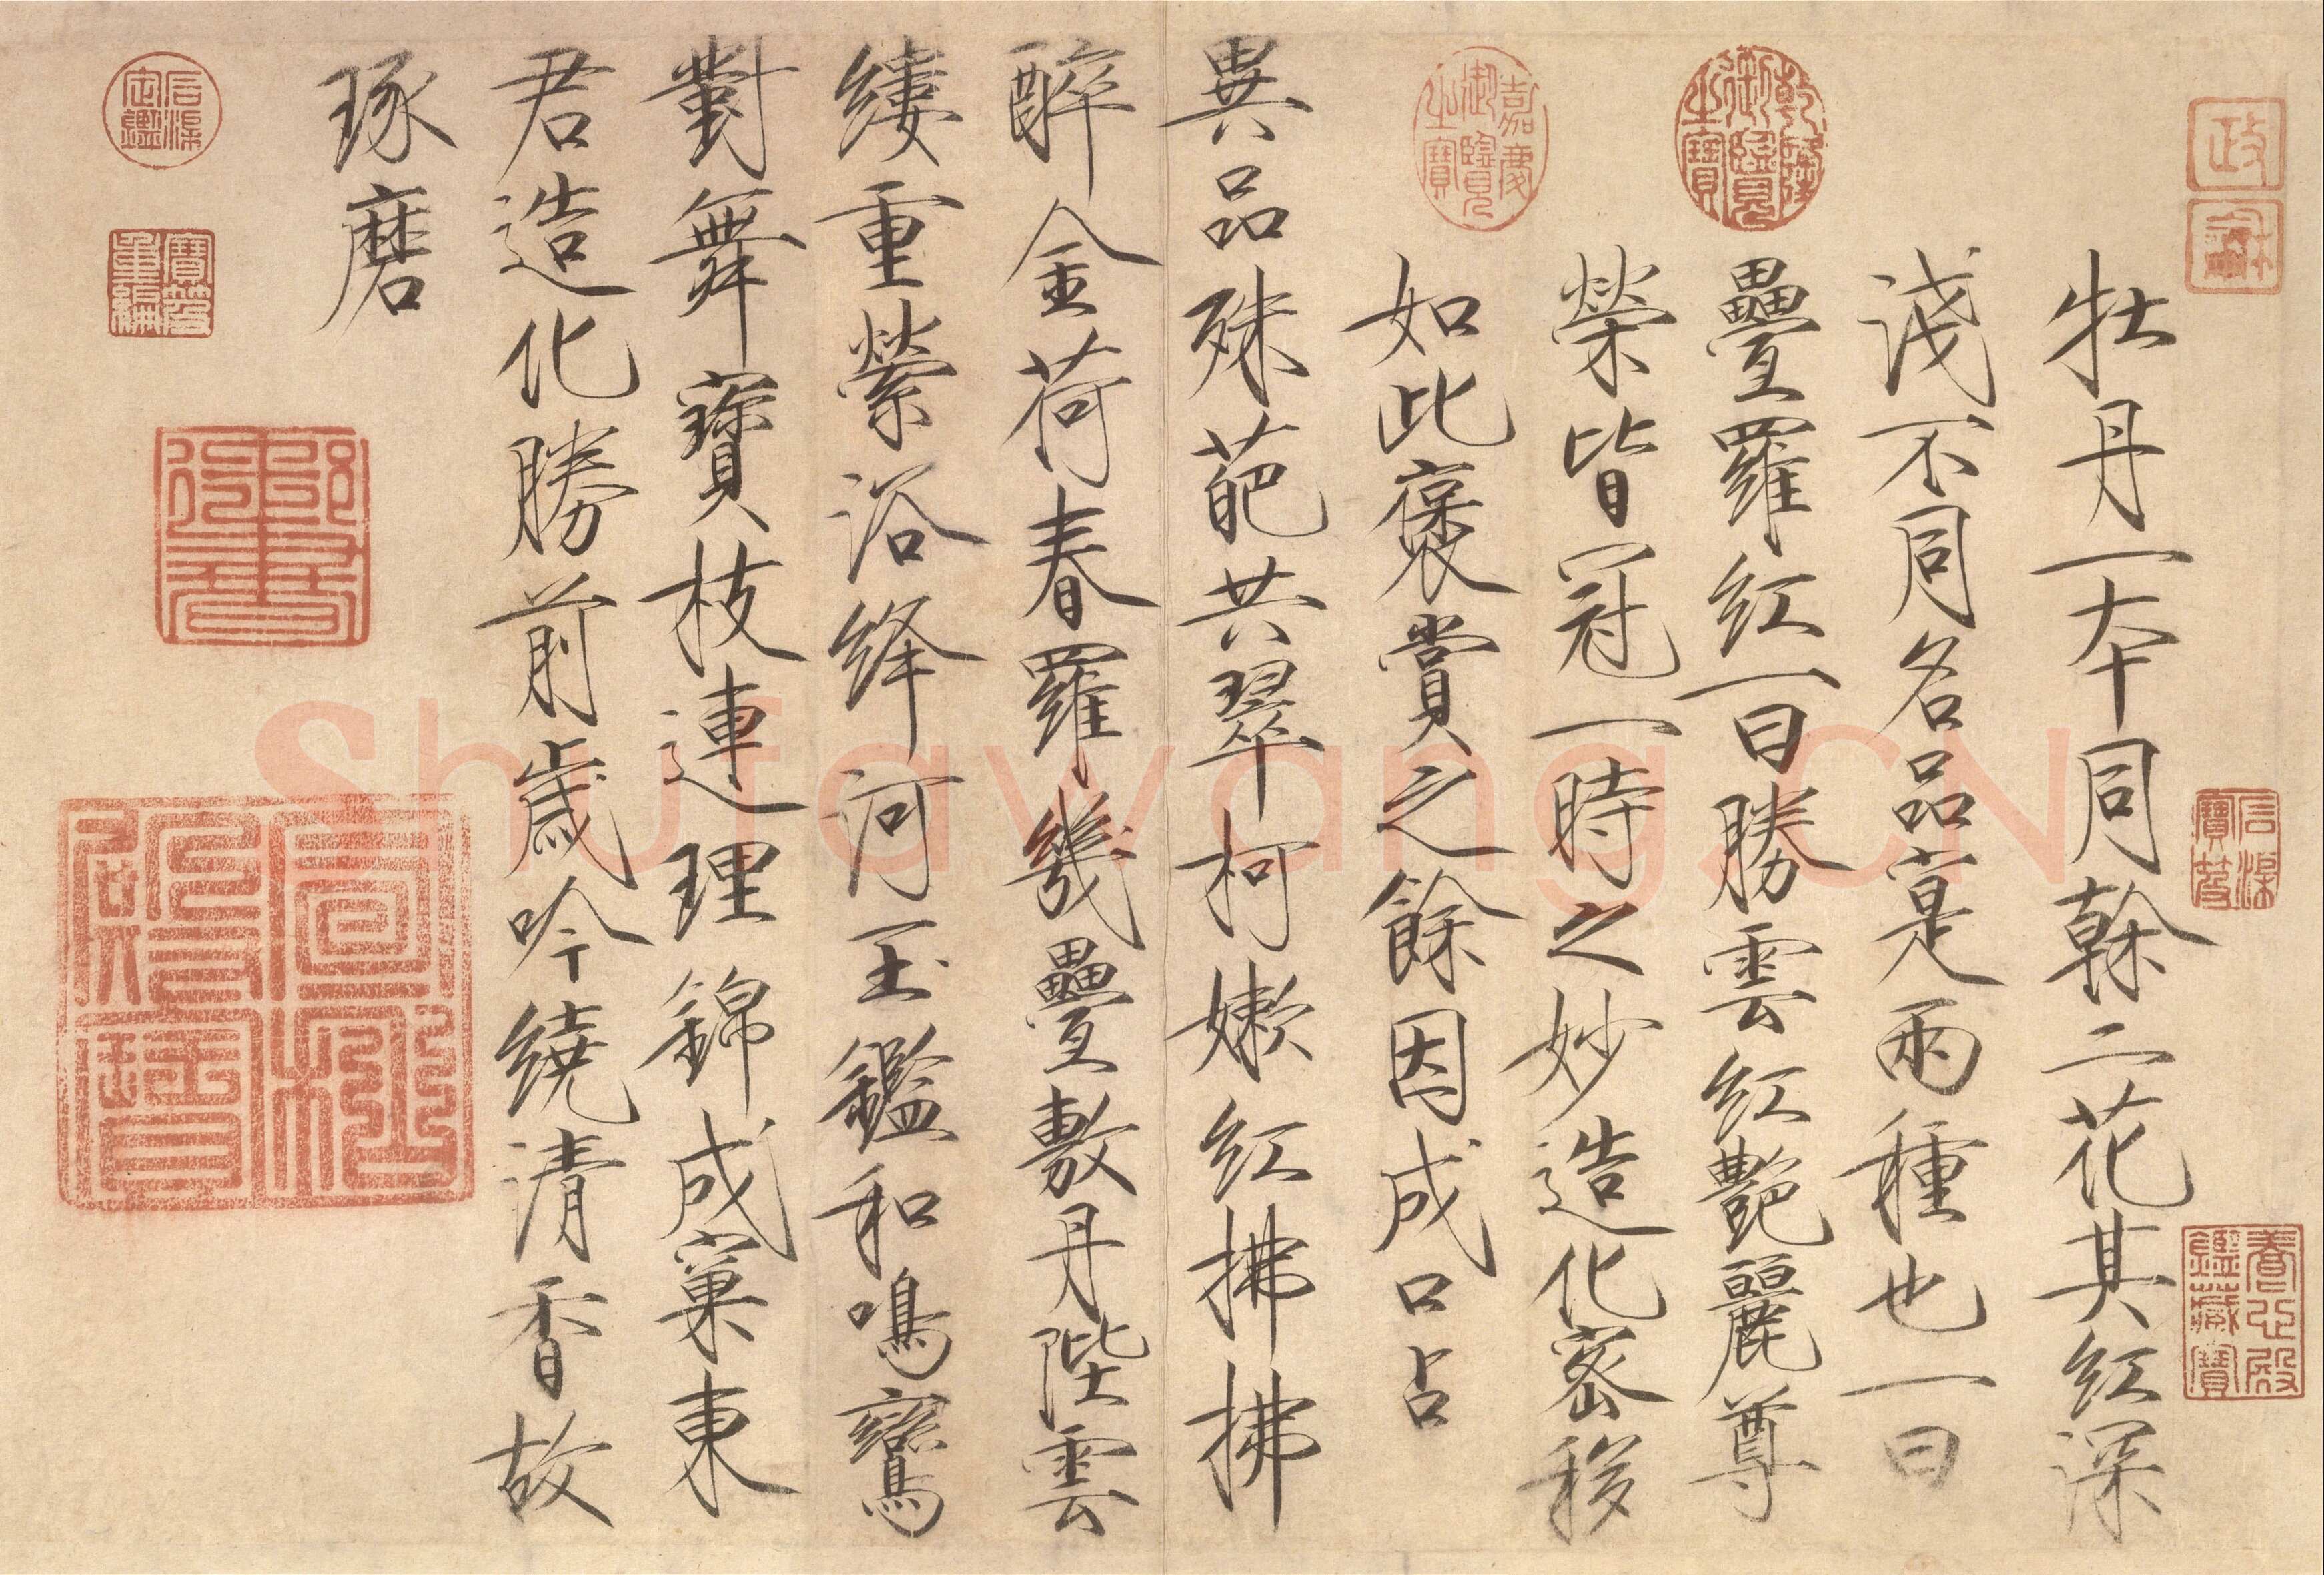 牡丹一本同榦二花其紅深
淺不同名品寔兩種也一曰
疊羅紅一曰勝雲紅艷麗尊
榮皆冠一時之妙造化密移
如此褒賞之餘因成口占
異品殊葩共翠柯嫩紅拂拂
醉金荷春羅幾疊敷丹陛雲
縷重縈浴絳河玉鑑和鳴鸞
對舞寶枝連理錦成窠東
君造化勝前歲吟繞清香故
琢磨
乾隆御覽之寶
嘉慶御覽之寶
養心殿鑑藏寶
Shufawang.CN